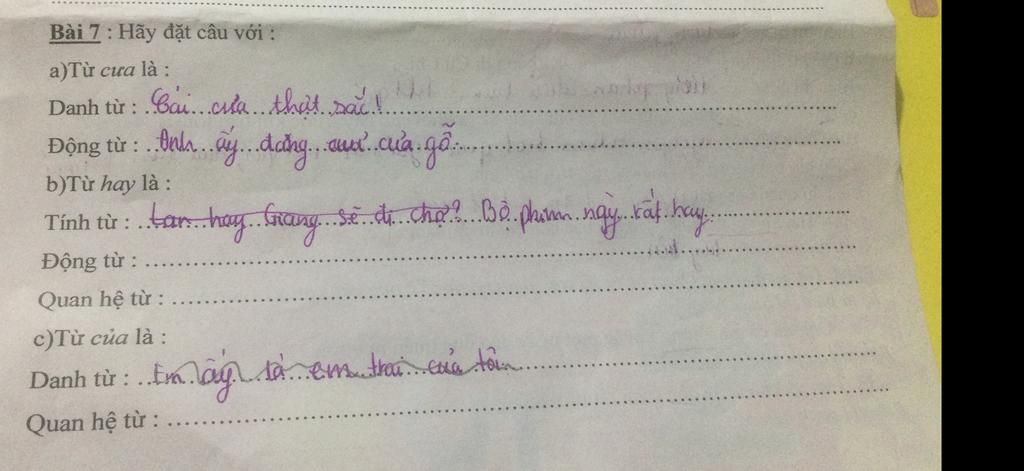 Bài 7 : Hãy đặt câu với :
a)Từ cưa là :
Danh từ : Cái cưa thật sắc!
Động từ : Anh ấy đang cưa gỗ.
b)Từ hay là :
Tính từ : Lan hay Giang sẽ đi chợ? Bộ phim này rất hay
Động từ :
Quan hệ từ :
c)Từ của là :
Danh từ : Em ấy là em trai của tôi
Quan hệ từ :